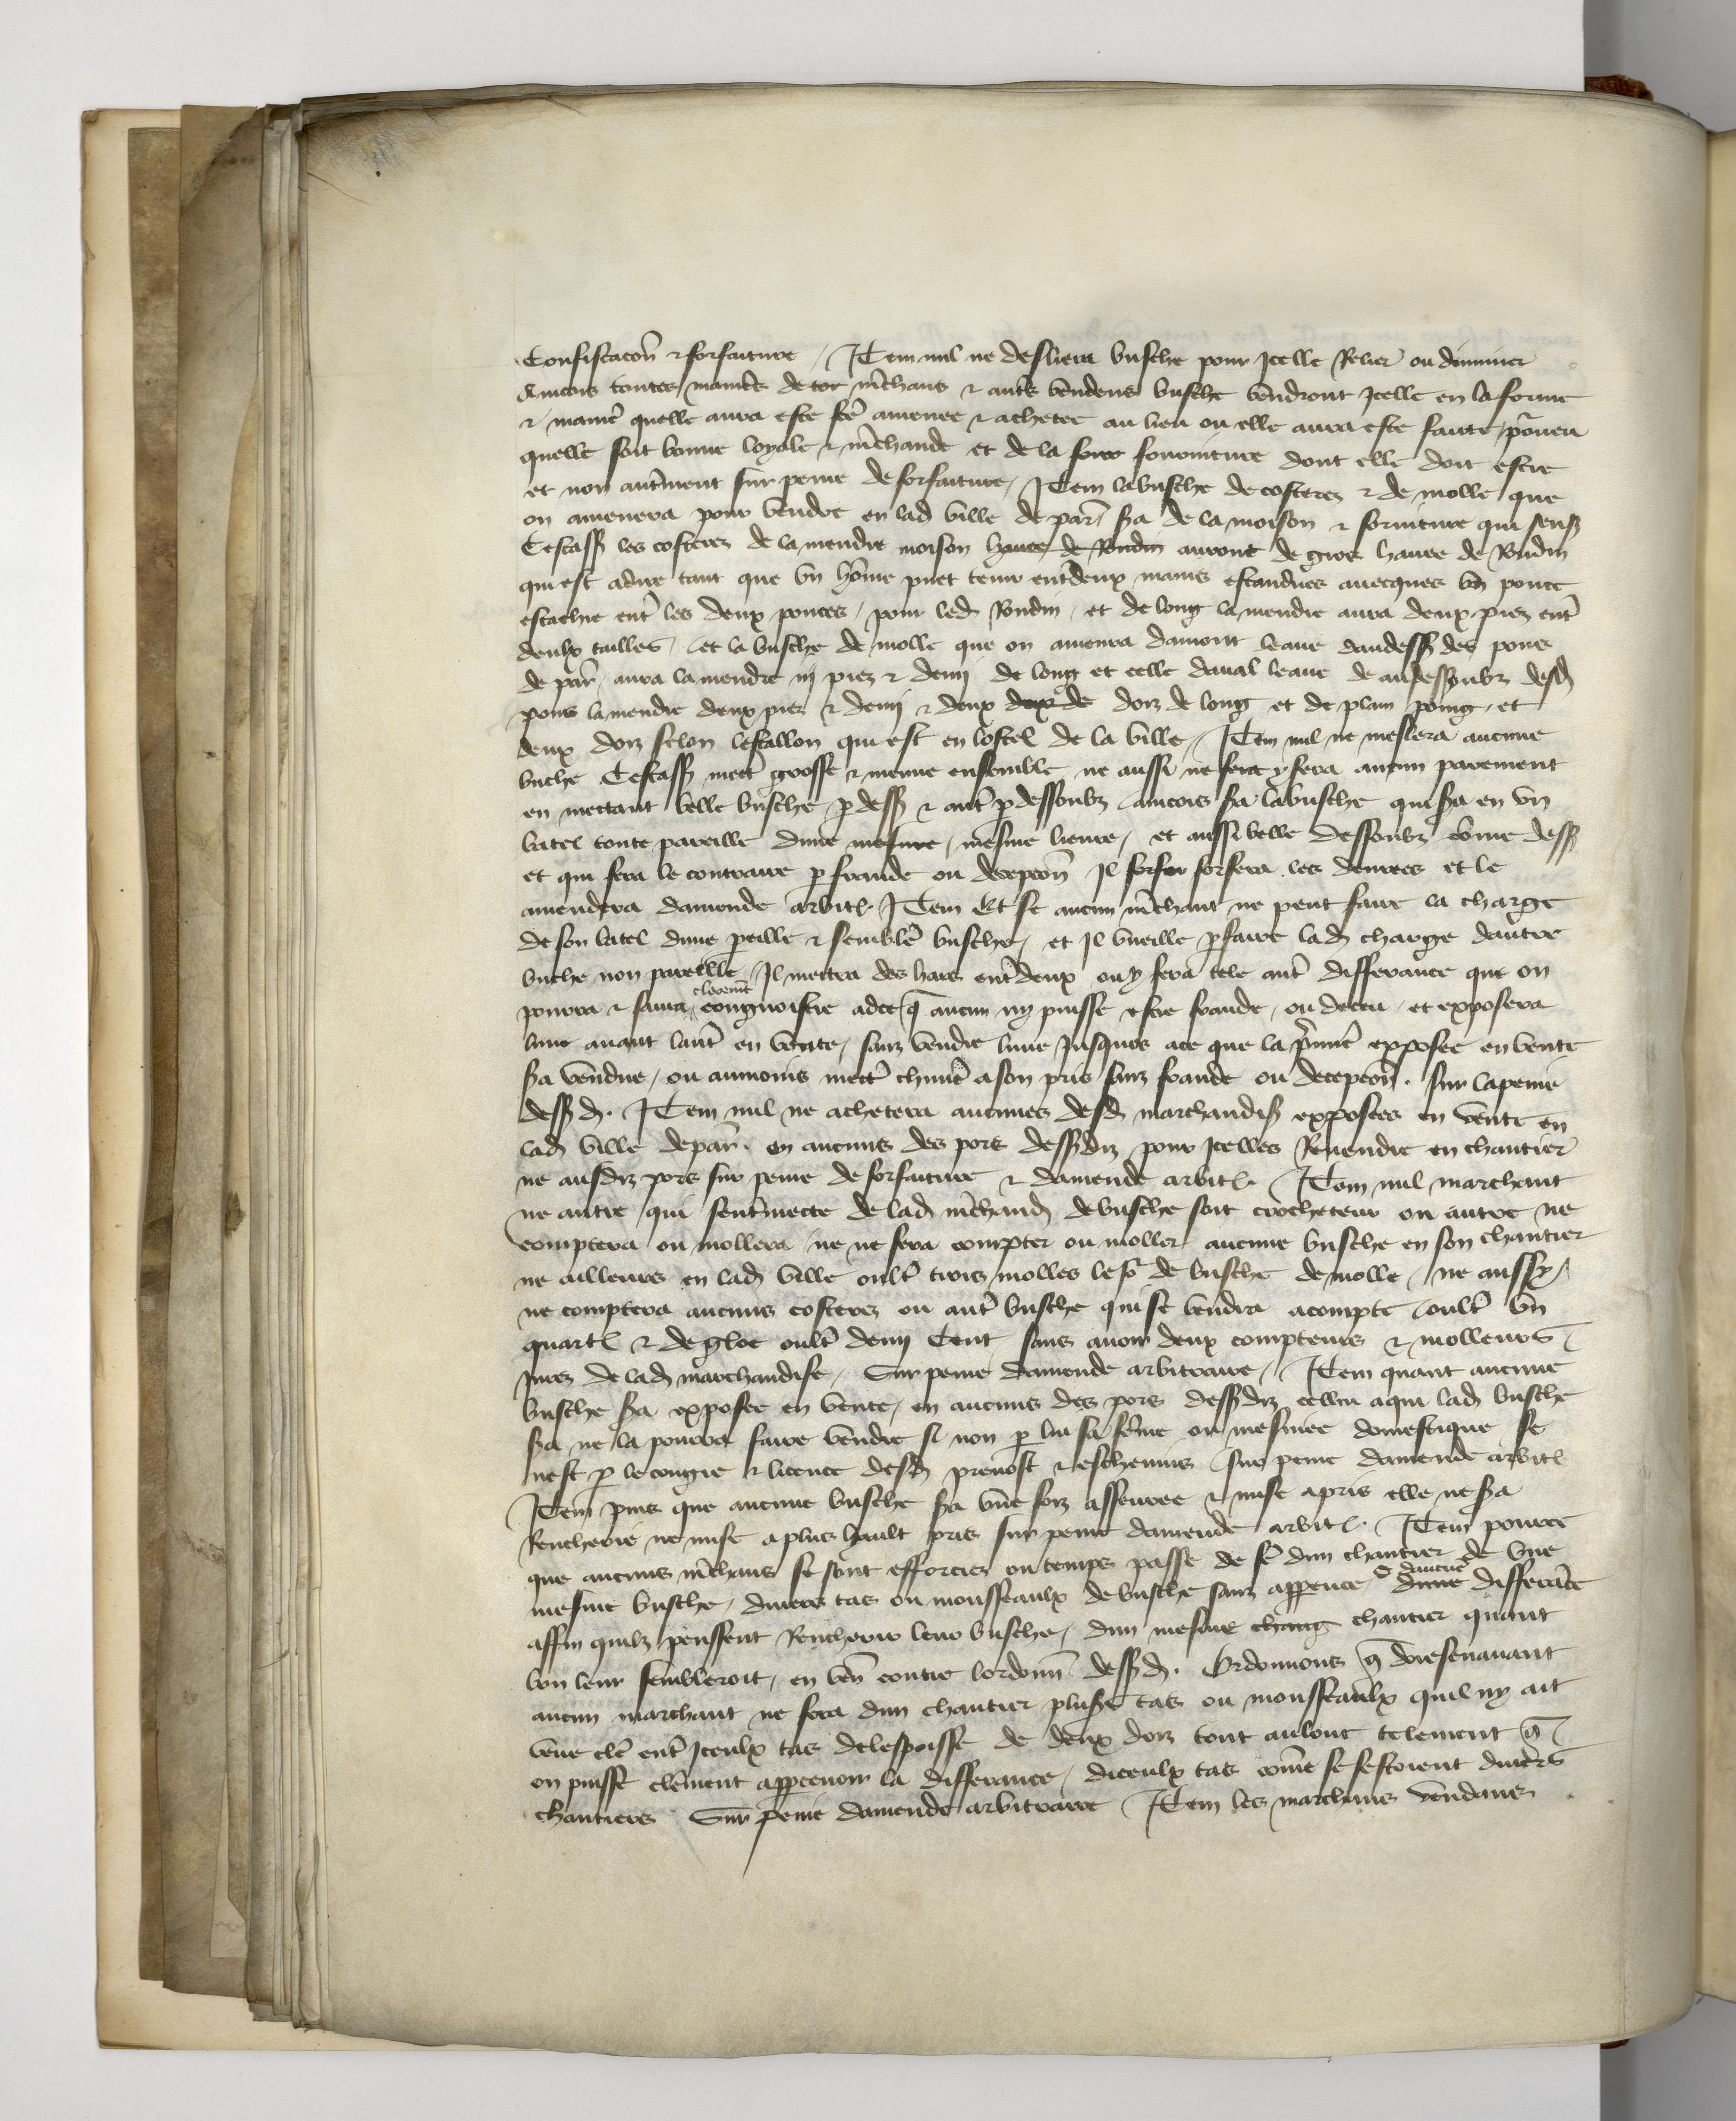 Confiscacon̄ & forfaiture / Item nul ne desliera busche pour Icelle Relier ou diminuer
Amcois toutes manieres de tor m̄chans & autres vendens busche vendront Icelle en la forme
& manier̄ quelle aura este fce amenee & achetee au lieu ou elle aura este faicte / pourveu
quelle soit bonne loyale & m̄chande et de la forno forniture dont elle doit estre
et non autrement sur peine de forfaiture / Item la busche de costerez & de molle que
on amenera pour vendre en lad ville de par sa de la moison & forniture qui sens
Cestass les costerez de la mendre moison hauce de Rondin auront de gros hauce de Rondin
qui est adire tant que vn hōme puet tenir entr̄deux mains estandues auecques vn pouce
estachie entr̄ les deux pouces / pour led Rondin / et de long la mendre aura deux piez entr̄
deulx tailles / et la busche de molle que on amenra damont leaue daudess des pons
de par̄ / aura la mendre iij piez & demj de long et celle daual leaue de audessoubz desd
pons la mendre deux piez & demj & deux doix de doiz de long et de plain poing / et
deux doiz selon lestallon qui est en lostel de la ville / Item nul ne meslera aucune
buche Cestass mectr̄ grosse & menue ensemble ne aussi ne fera y fera aucun parement
en mectant belle busche p dess & autr̄ p dessoubz amcois sa la busche qui sa en vn
batel toute pareille dune mesure / mesme lieure / et aussi belle dessoubz cōme dess
et qui fera le contraire p fraude ou decepcon̄ Il forfer forfera les denrees et le
amendera damende arbitl Item Et se aucun m̄chant ne peut faire la charge
de son batel dune p̄eille & semblē busche / et Il vueille p̄faire lad charge dautre
buche non pareille / Il mettra des hars entr̄deux ou y fera tele autr̄ differance que on
pourra & saura clerem̄t congnoistre adce q̄ aucun ny puisse estre fraude / ou deceu / et exposera
lune auant lautr̄ en vente / sanz vendre lune Jusques ace que la p̄miere exposee en vente
sa vendue / ou aumoins mectr̄ chūne a son pris sanz fraude ou decepcon̄ . sur la peine
dess d. Item nul ne achetera aucunes desd marchandis exposees en vente en
lad ville depar̄ . en aucuns des pors dessdiz pour Icelles Reuendre en chantier
ne ausdiz pors sur peine de forfaiture & damende arbitl. Item nul marchant
ne autre qui sentr̄mecte de lad m̄chand de busche soit crocheteur ou autre ne
comptera ou mollera ne ne fera compter ou moller aucune busche en son chantier
ne ailleurs en lad ville oultr̄ trois molles de busche de molle / ne aussy
ne comptera aucuns costerez ou autr̄ busche qui se vendra acompte oultr̄ vn
quartl & de gloe oultr̄ demj Cent sans auoir deux compteurs & molleurs
Jurez de lad marchandise / Sur peine damende arbitraire / Item quant aucune
busche sa exposee en vente / en aucuns des pors dessdiz cellui aqui lad busche
sa ne la pourra faire vendre si non p lui sa fēme ou mesniee domestique se
nest p le congie & licence desd preuost & escheuins sur peine damende arbitl
Item puis que aucune busche sa vne foiz affeuree & mise apris elle ne sa
Rencherie ne mise a plus hault pris sur peine damende arbitl. Item pource
que aucuns m̄chans se sont efforciez ou temps passe de fe dun chantier de vne
mesme busche / diuers tas ou monsseaulx de busche sanz appence o dautre dune differāce
affin quilz peussent Rencherir leur busche / dun mesme chang chantier quant
bon leur sembleroit / en ven contre lordonn̄ dess d. Ordonnons q̄ doresenauant
aucun marchant ne fera dun chantier plus tas ou monsseaulx quil ny ait
veue cler̄ entr̄ Iceulx tas delespoisse de deux doiz tout aulonc telement q̄
on puisse cleremēt apperceuoir la differance / diceulx tas cōme se sestoient diuers
chantiers Sur peine damende arbitraire Item les marchans vendans